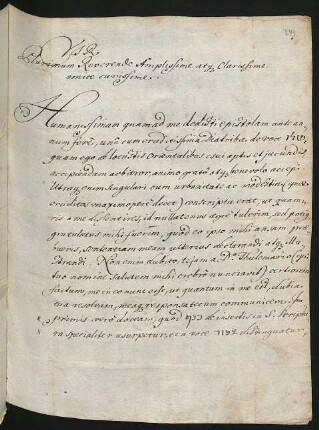 Plurimum Reverende Amplissime atq Clarissime
amice carissime.
Humanissimam quam ad me dedisti epistolam ante an-
num ferè, unà cum eruditissima diatriba de voce
quam ego de locustis Orientalibus esui aptis et jucundis
accipiendam arbitror, animo grato atq benevolo accepi
Utraq cum singulari cum urbanitate ac modestia, quae
eruditos maximopere decet, conscripta erat, ut quam-
vis a me dissentires, id nullatenus aegre tulerim, sed potius
gratulatus mihi fuerim, quod eo ipso mihi ansam prae-
beres, sententiam meam ulterius declarandi atq illu-
strandi. Non enim dubito, te jam a Dno
tuo nomine salutem mihi crebrò nunciavit) certiorem
factum, me in eo nunc esse, ut quantum in me est, dubia
tua resolvam, meaq responsa tecum communicem. In
primis verò doceam, quod de insectis in S. Scriptu-
ra specialiter usurpetur, et a voce distinguatur,